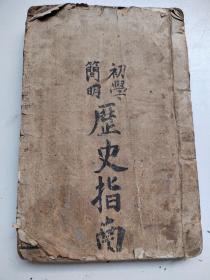 初學
簡明
歷史指南